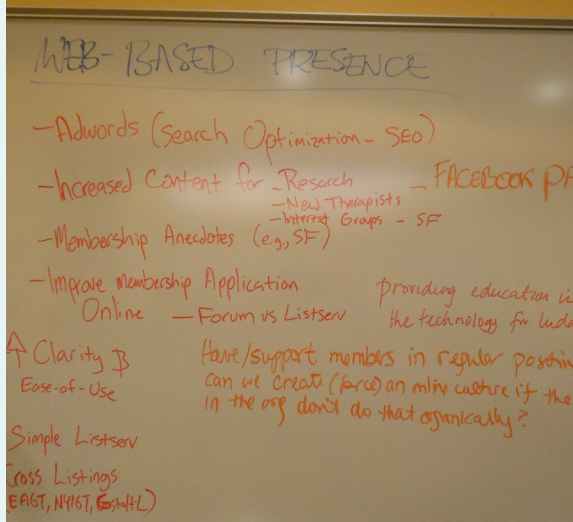 WEB-BASED PRESENCE
- Adwords (Search Optimization - SEO)
- Increased Content for - Resarch
- FACEBOOK PA
- New Therapists
- Interest Groups - SF
- Membership Anecdotes (e.g., SF)
- Improve Membership Application
Online - Forum vs Listserv
providing education i
the technology for Ludd
↑ Clarity &
Ease-of-Use
Have/support members in regular postin
can we creat (force) an online culture if the
in the org don't do that organically?
Simple Listserv
Cross Listings
(EAGT, NYIGT, Gestalt-L)